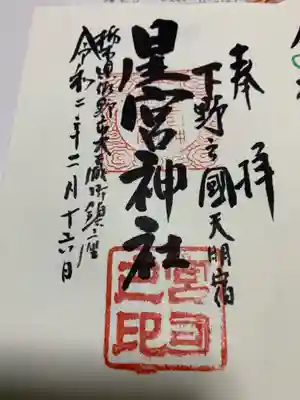 奉拝
下野之國天明宿
星宮神社
栃木県佐野市大蔵町鎮座
令和二年二月十六日